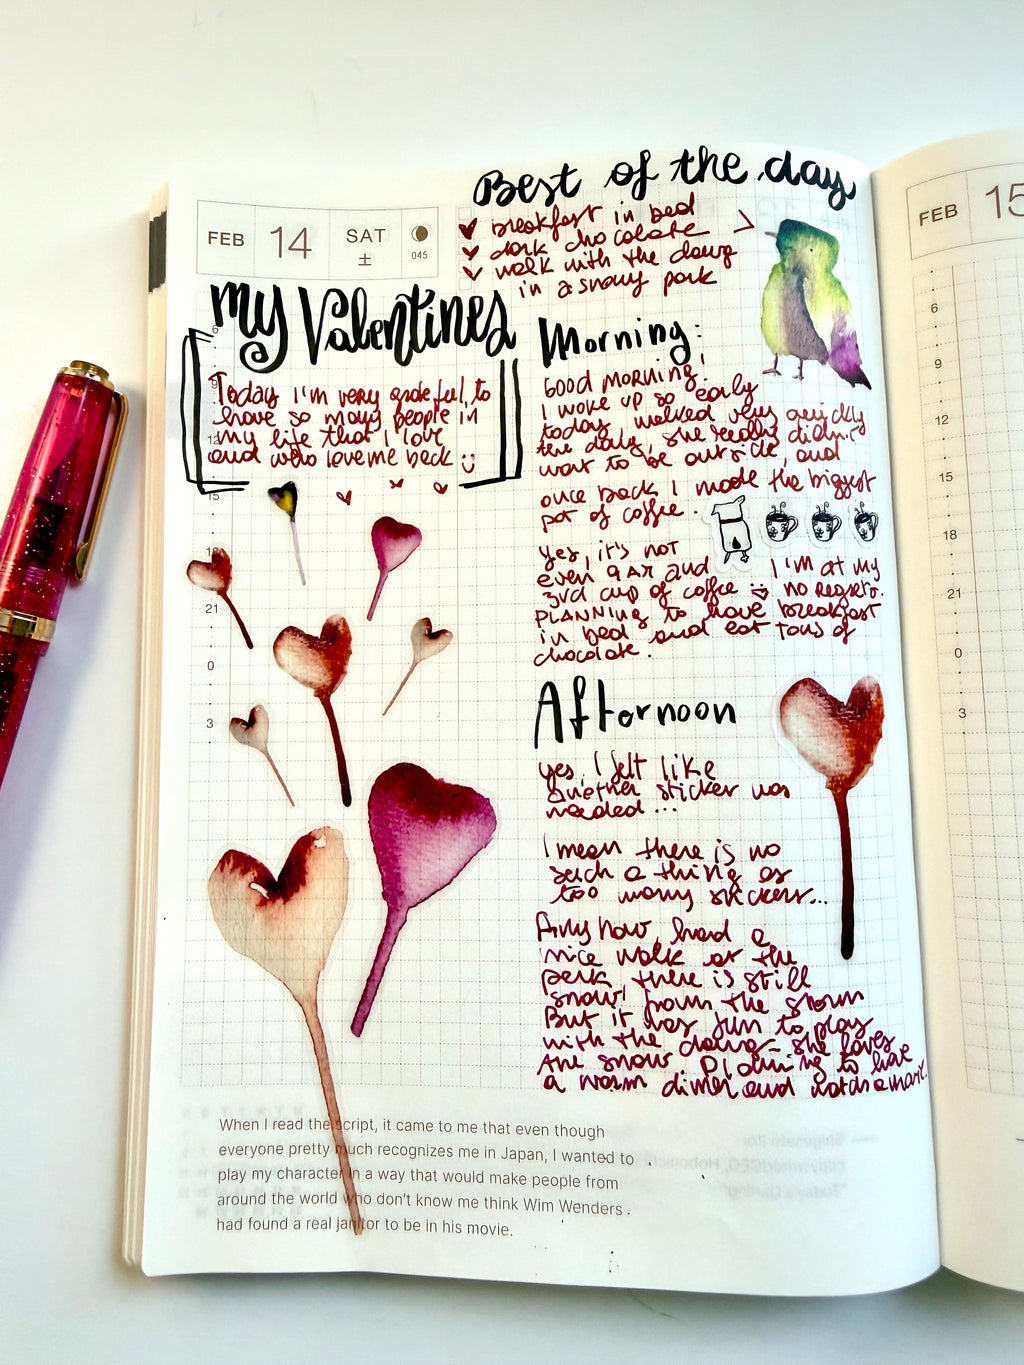 FEB 14 SAT
土 045
Best of the day
breakfast in bed
dark chocolate
walk with the dawg
in a snowy park
My Valentines
Today I'm very grateful, to
have so many people in
my life that I love
and who love me back
6
9
12
15
18
21
0
3
Morning:
Good morning!
I woke up so early
today, walked very quickly
the dawg, she really didn't
want to be outside, and
once back I made the biggest
pot of coffee.
Yes, it's not
even 9AM and I'm at my
3rd cup of coffee no regrets.
PLANNING to have breakfast
in bed and eat tons of
chocolate.
Afternoon
yes, I felt like
another sticker was
needed...
I mean there is no
such a thing as
too many stickers...
Anyhow, had a
nice walk at the
park, there is still
snow from the storm
But it was fun to play
with the dawg - she loves
the snow. Planning to have
a warm dinner and watch a movie.
When I read the script, it came to me that even though
everyone pretty much recognizes me in Japan, I wanted to
play my character in a way that would make people from
around the world who don't know me think Wim Wenders
had found a real janitor to be in his movie.
FEB 15
6
9
12
15
18
21
0
3